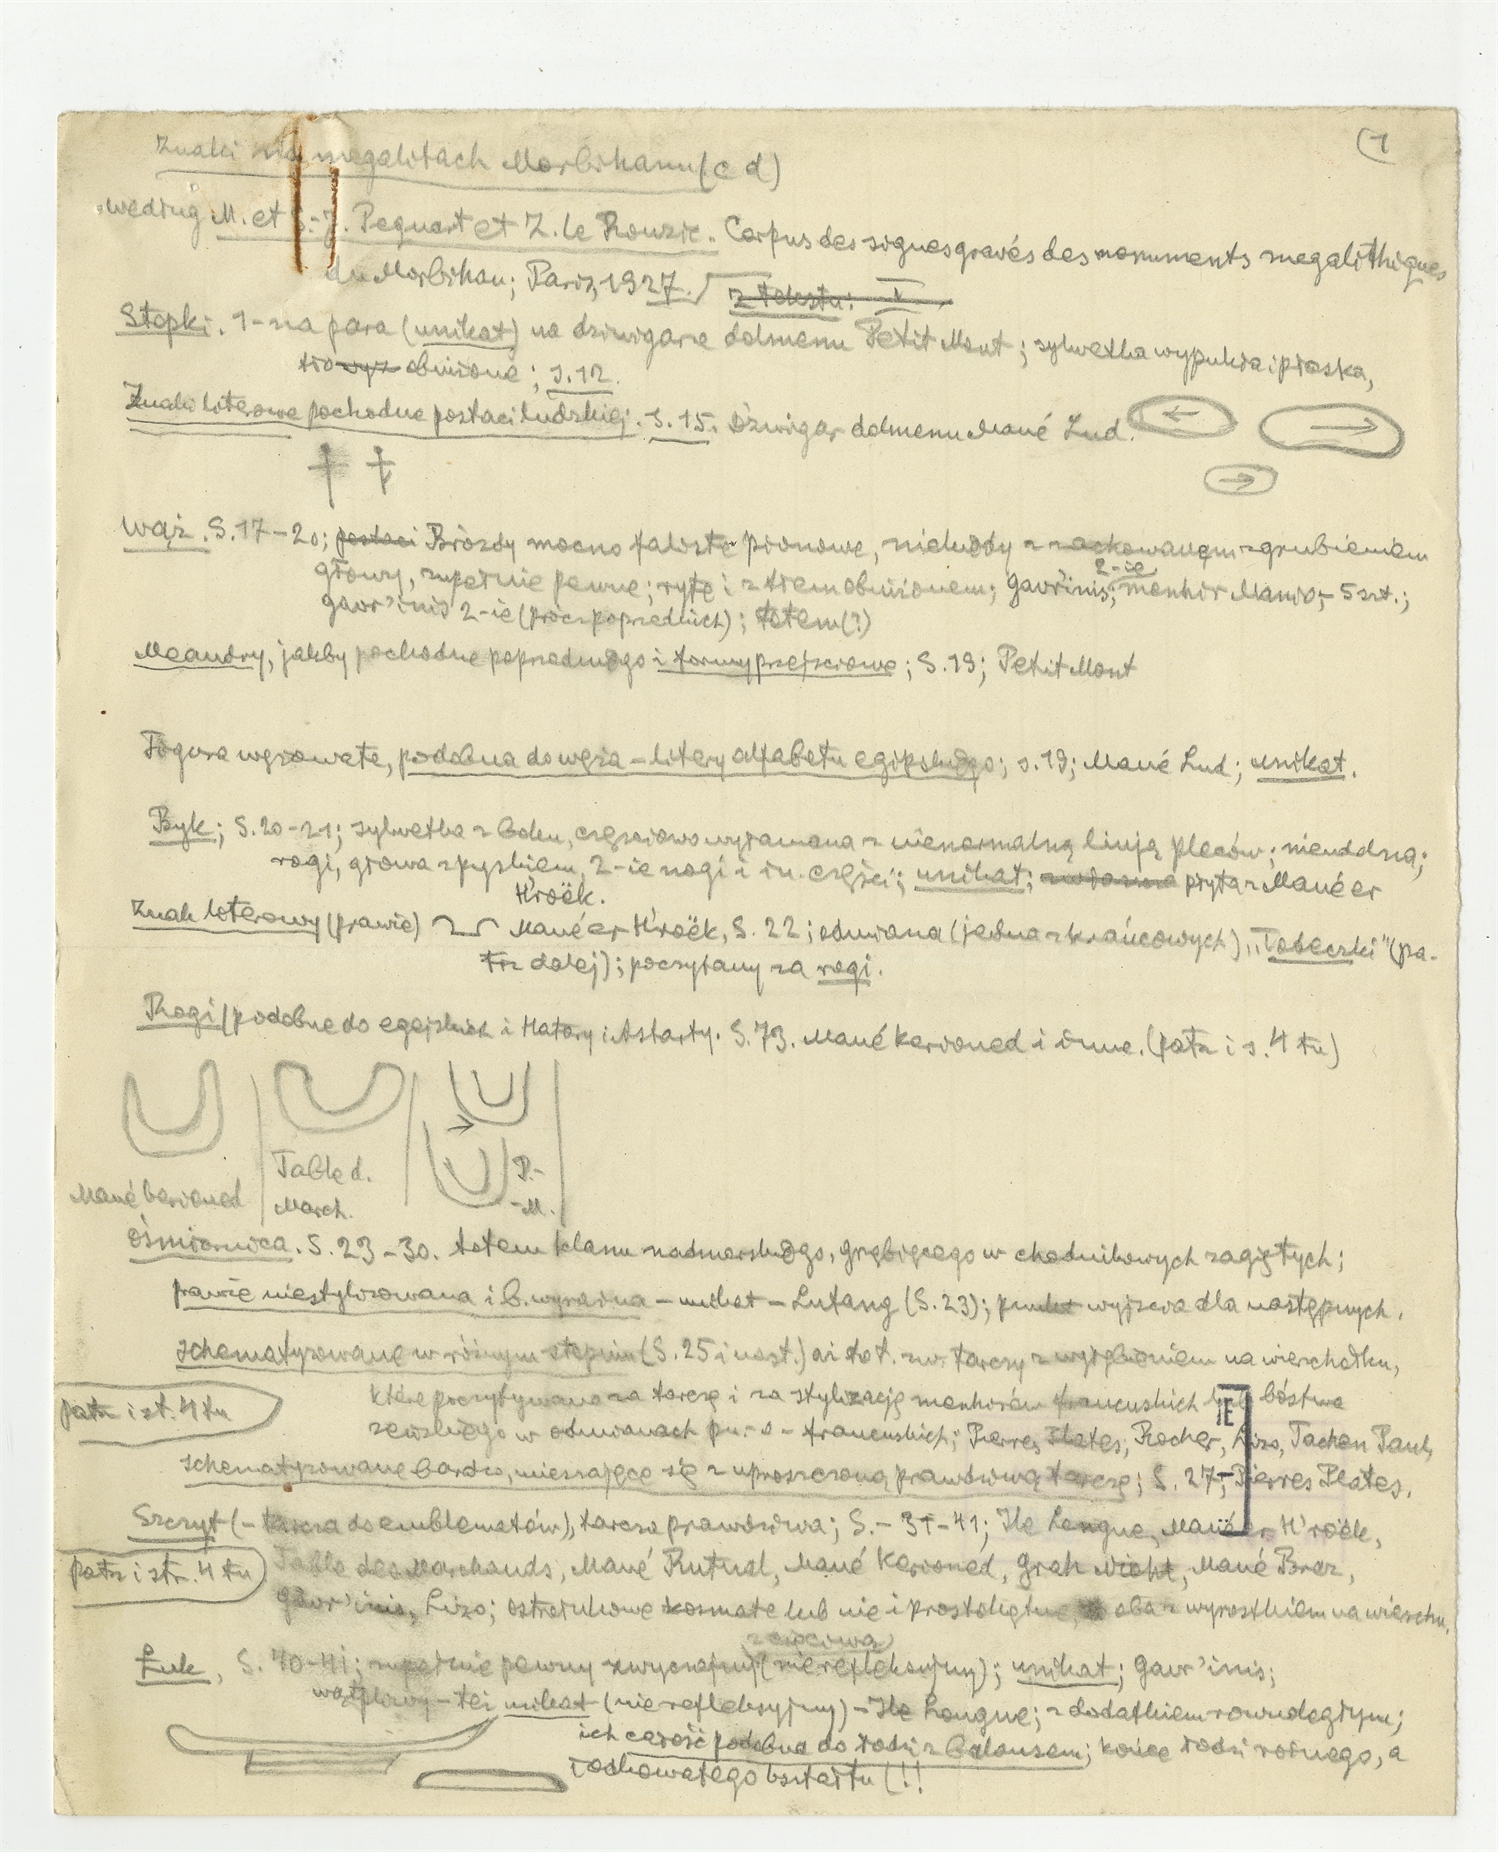 (1
Znaki na megalitach Morbihanu (c d)
według M. et S.-J. Pequart et Z. le Rouzic. Corpus des signes gravés des monuments megalithiques
du Morbihan; Paris, 1927. z tekstu: I
Stopki. 1-na para (unikat) na dźwigarze dolmenu Petit Mont; sylwetka wypukła i płaska,
tło obniżone; s. 12.
Znaki literowe pochodne postaci ludzkiej. S. 15. Dźwigar dolmenu Mané Lud.
Wąż. S. 17-20; postaci Brózdy mocno faliste pionowe, niekiedy z zachowanem zgrubieniem
głowy, zupełnie pewne; ryte i z tłem obniżonem; Gavr'inis; 2-ie menhir Manio, - 5 szt.;
Gavr'inis 2-ie (prócz poprzednich); totem (?)
Meandry, jakby pochodne poprzedniego i formy przejściowe; S. 19; Petit Mont
Figura wężowata, podobna do węża - litery alfabetu egipskiego; s. 19; Mané Lud; unikat.
Byk; S. 20-21; sylwetka z boku, częściowo wyłamana z nienormalną linją pleców; nieudolna;
rogi, głowa z pyskiem, 2-ie nogi i in. części; unikat; płyta z Mané er
H'roëk.
Znak literowy (prawie) Mané er H'roëk, S. 22; odmiana (jedna z krańcowych) „Tobeczki" (pa-
trz dalej); poczytany za rogi.
Rogi/podobne do egejskich i Hatory i Astarty. S. 73. Mané Kerioned i inne. (patrz i s. 4 tu)
Mané Kerioned
Table d.
March.
P.-
-M.
Ośmiornica. S. 23-30. totem klanu nadmorskiego, grzbiącego w chodnikowych zagiętych;
prawie niestylizowana i b. wyraźna - unikat - Lufang (S. 23); punkt wyjścia dla następnych.
Schematyzowane w różnym stopniu (S. 25 i nast.) aż do t. zw. tarczy z wygiębieniem na wierzchołku,
patrz i st. 4 tu
które poczytywano za tarczę i za stylizację menhirów francuskich lub bóstwa
żeńskiego w odmianach pn.-o-francuskich; Pierres Plates, Rocher, Lizo, Tachen Paul,
IE
Schematyzowane bardzo, mieszające się z uproszczoną prawdziwą tarczą; S. 27; Pierres Plates.
Szczyt (- tarcza do emblematów), tarcza prawdziwa; S. - 31-41; Ile Longue, Mané er H'roëk,
patrz i str. 4 tu
Table des Marchands, Mané Rutual, Mané Kerioned, Grah Niohl, Mané Braz,
Gavr'inis, Lizo; ostrołukowe kosmate lub nie i prostokątne, oba z wyrostkiem na wierzchu.
z cięciwą
Łuk, S. 40-41; zupełnie pewny zwyczajny (nierefleksyjny); unikat; Gavr'inis;
wątpliwy - też unikat (nierefleksyjny) - Ile Longue; z dodatkiem równoległym;
ich całość podobna do łodzi z balansem; końce łodzi różnego, a
kształtu (!!